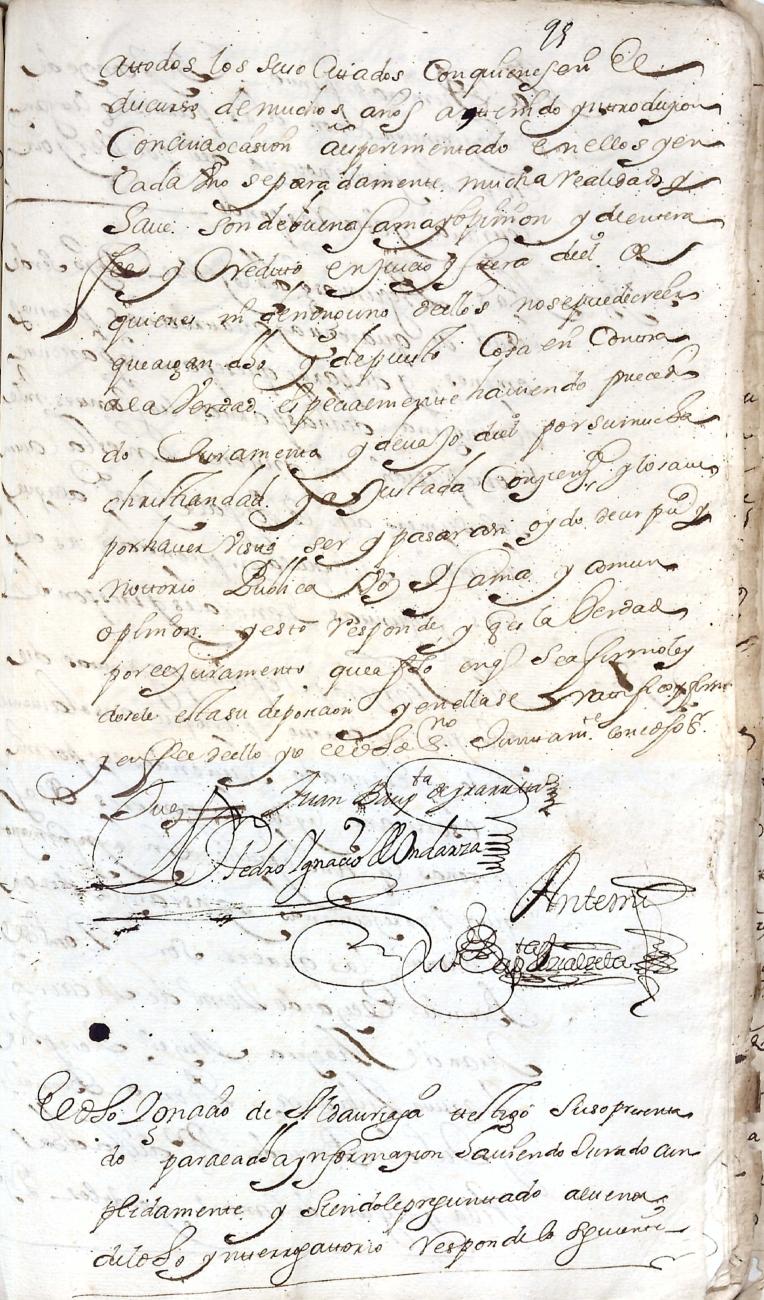 95
attodos los suso Cittados Conquienes en el
discurso de muchos años a tenido yntroduzion
Con cuia ocasion a experimentado en ellos y en
Cada Uno separadamente mucha realidad y
Save son de buena fama y opinion y de entera
fee y Credito en juicio y fuera del de
quienes ni de ninguno dellos no se puede creer
que aigan dho y depuesto Cosa en Contra
de la Verdad especialmente haviendo preced
do Juramento y devajo del por su mucha
christiandad y ajustada Conzienz y lo save
por haver visto ser y pasar asi oydo decir pu y
nottorio Publica Voz y fama y comun
opinion y esto responde y q es la Verdad
por el juramento que a fho en q se afirmo ley
dosele esta su deposicion y en ella se ratifico y firmo
y en fee dello yo el dho ess.no Juntam.te con el dho
Juez
Juan Baup.ta de
Pedro Ignacio de Ondarza
Antemi
Bap.ta
El dho Ignacio de Aldauriaga testigo suso presenta
do para la dha ynformazion haviendo Jurado cun
plidamente y siendole preguntado a thenor
del dho ynterrogattorio respondelo siguiente